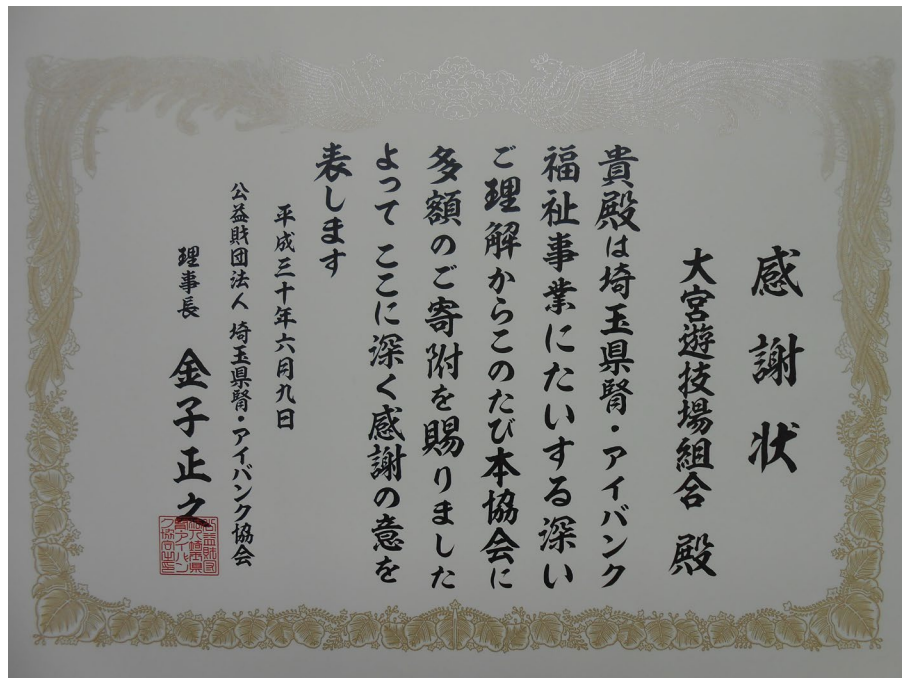 感謝状
大宮遊技場組合 殿
貴殿は埼玉県腎・アイバンク
福祉事業にたいする深い
ご理解からこのたび本協会に
多額のご寄附を賜りました
よって ここに深く感謝の意を
表します
平成三十年六月九日
公益財団法人 埼玉県腎・アイバンク協会
理事長 金子正之